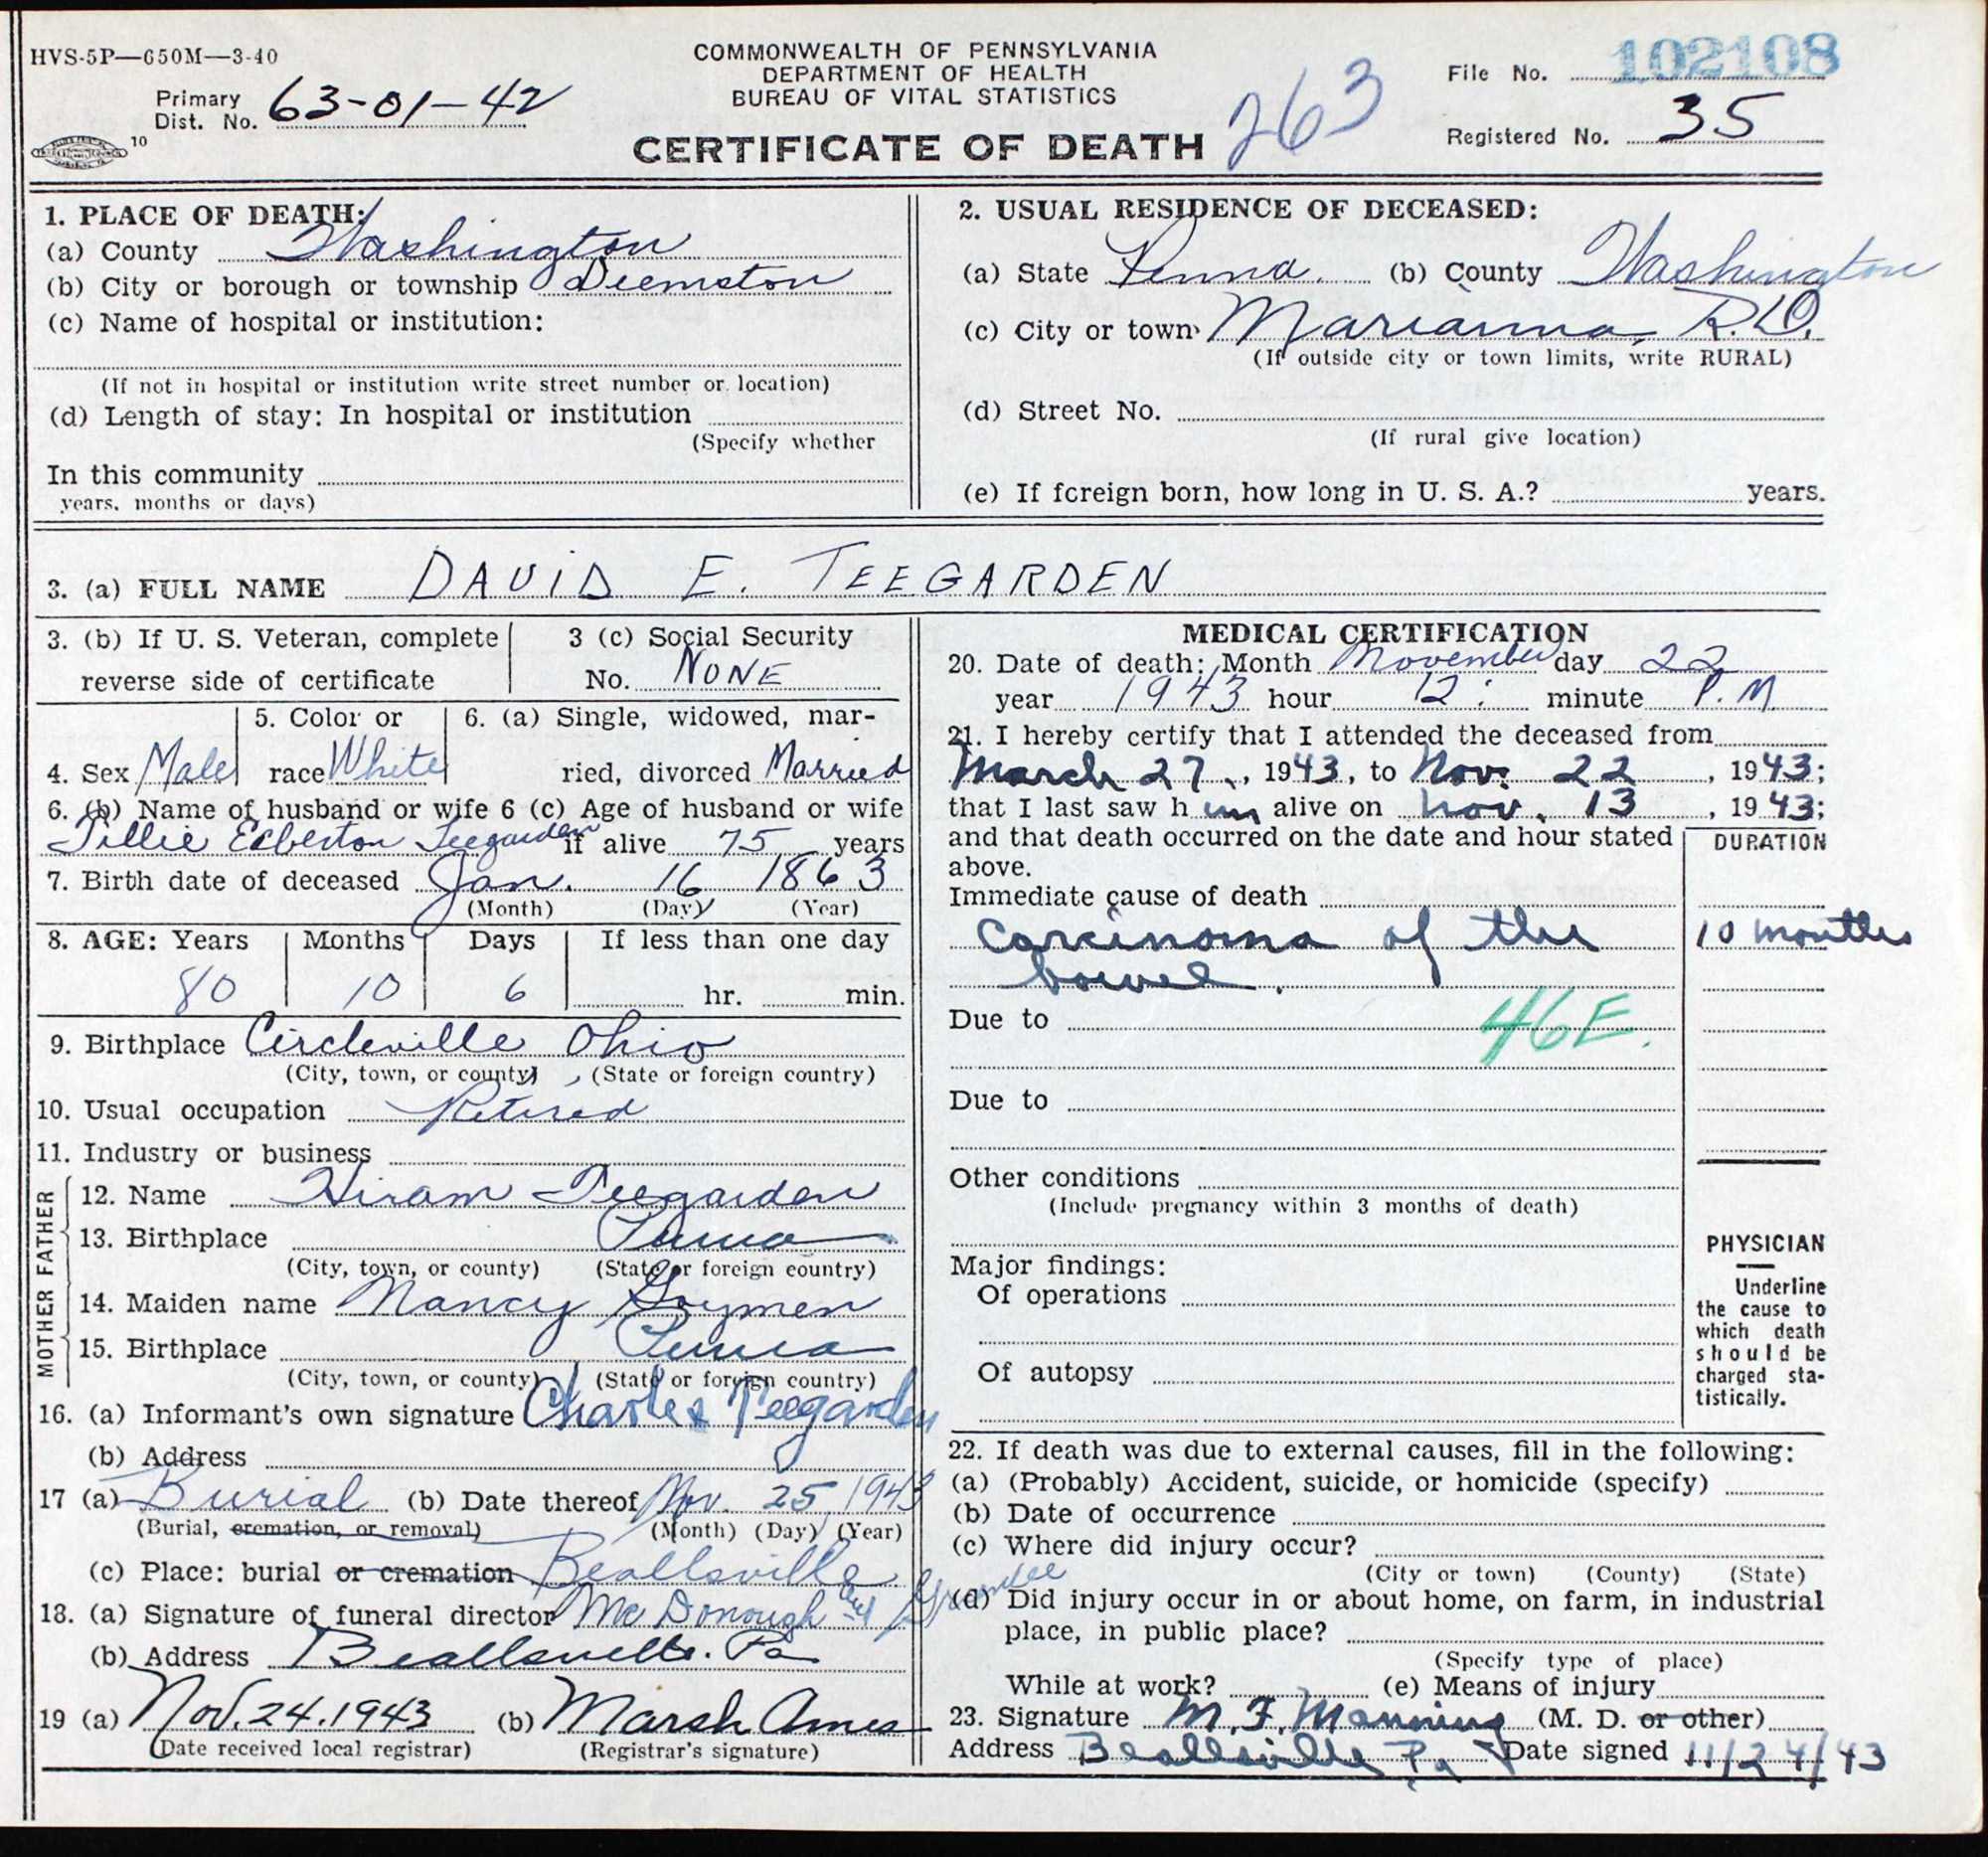 HVS-5P—650M—3-40
COMMONWEALTH OF PENNSYLVANIA
DEPARTMENT OF HEALTH
BUREAU OF VITAL STATISTICS
CERTIFICATE OF DEATH
263
Primary Dist. No. 63-01-42
10
File No. 102108
Registered No. 35
1. PLACE OF DEATH:
(a) County Washington
(b) City or borough or township Deemston
(c) Name of hospital or institution:
(If not in hospital or institution write street number or location)
(d) Length of stay: In hospital or institution
(Specify whether
In this community
years, months or days)
2. USUAL RESIDENCE OF DECEASED:
(a) State Penna. (b) County Washington
(c) City or town Marianna, R.D.
(If outside city or town limits, write RURAL)
(d) Street No.
(If rural give location)
(e) If foreign born, how long in U. S. A.? years.
3. (a) FULL NAME DAVID E. TEEGARDEN
3. (b) If U. S. Veteran, complete
reverse side of certificate
3 (c) Social Security
No. NONE
4. Sex Male
5. Color or
race White
6. (a) Single, widowed, mar-
ried, divorced Married
6. (b) Name of husband or wife 6 (c) Age of husband or wife
Tillie Teegarden if alive 75 years
7. Birth date of deceased Jan. 16 1863
(Month) (Day) (Year)
8. AGE: Years Months Days If less than one day
80 10 6 hr. min.
9. Birthplace Circleville Ohio
(City, town, or county) (State or foreign country)
10. Usual occupation Retired
11. Industry or business
FATHER
12. Name Hiram Teegarden
13. Birthplace Penna
(City, town, or county) (State or foreign country)
MOTHER
14. Maiden name Nancy
15. Birthplace Penna
(City, town, or county) (State or foreign country)
16. (a) Informant's own signature Charles Teegarden
(b) Address
17 (a) Burial (b) Date thereof Nov. 25 1943
(Burial, cremation, or removal) (Month) (Day) (Year)
(c) Place: burial or cremation Beallsville
18. (a) Signature of funeral director McDonough and
(b) Address Beallsville. Pa
19 (a) Nov. 24. 1943 (b) Marsh Ames
(Date received local registrar) (Registrar's signature)
MEDICAL CERTIFICATION
20. Date of death: Month November day 22
year 1943 hour 12: minute P.M.
21. I hereby certify that I attended the deceased from
March 27, 1943, to Nov. 22, 1943;
that I last saw h im alive on Nov. 13, 1943;
and that death occurred on the date and hour stated
above.
DURATION
Immediate cause of death
Carcinoma of the 10 months
bowel.
Due to 46E.
Due to
Other conditions
(Include pregnancy within 3 months of death)
Major findings:
Of operations
Of autopsy
PHYSICIAN
Underline
the cause to
which death
should be
charged sta-
tistically.
22. If death was due to external causes, fill in the following:
(a) (Probably) Accident, suicide, or homicide (specify)
(b) Date of occurrence
(c) Where did injury occur?
(City or town) (County) (State)
(d) Did injury occur in or about home, on farm, in industrial
place, in public place?
(Specify type of place)
While at work? (e) Means of injury
23. Signature M. F. Manning (M. D. or other)
Address Beallsville Pa Date signed 11/24/43